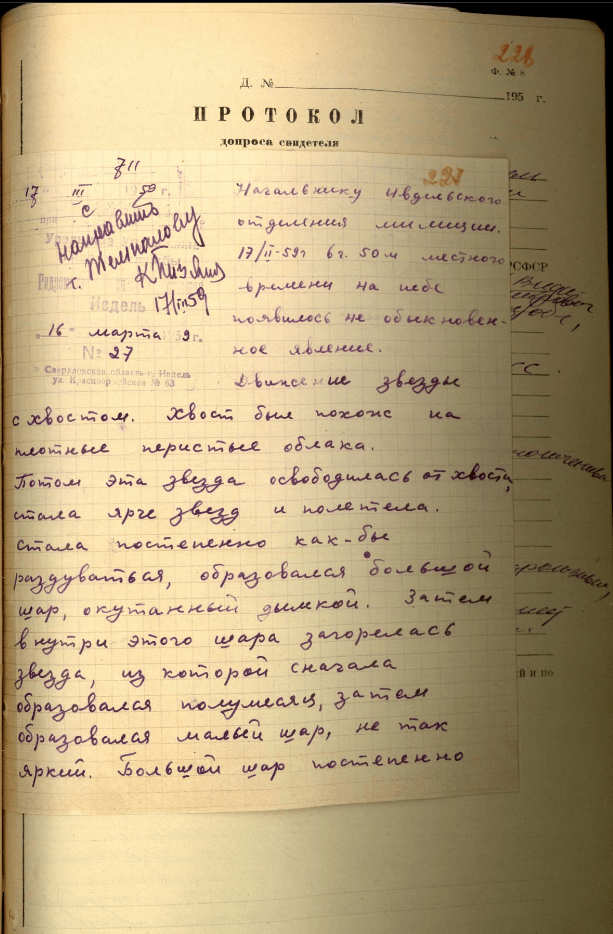 226
Ф. № 8
Д. №
195 г.
ПРОТОКОЛ
допроса свидетеля
227
Начальнику Ивдельского
отделения милиции.
17/II-59г 6 г. 50 м местного
времени на небе
появилось не обыкновен-
ное явление.
Движение звезды
с хвостом. Хвост был похож на
плотные перистые облака.
Потом эта звезда освободилась от хвоста,
стала ярче звезд и полетела.
стала постепенно как-бы
раздуваться, образовался большой
шар, окутанный дымкой. Затем
внутри этого шара загорелась
звезда, из которой сначала
образовался полумесяц, затем
образовался малый шар, не так
яркий. Большой шар постепенно
17 III 59
Направить
т. Темпалову
17/III 59
Ивдель
16 марта 1959 г.
№ 27
Свердловская область г. Ивдель
ул. Красноармейская № 63
РСФСР